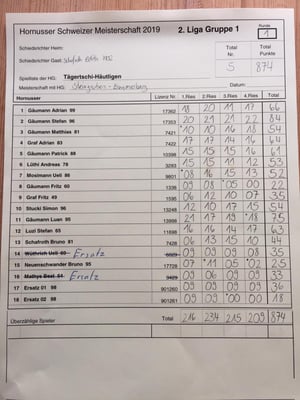 Hornusser Schweizer Meisterschaft 2019 2. Liga Gruppe 1 Runde 1
Schiedsrichter Heim:
Schiedsrichter Gast: Total Nr. Total Punkte
Spielliste der HG: Tägertschi-Häutligen 5 874
Meisterschaft mit HG: Datum:
Hornusser Lizenz Nr. 1.Ries 2.Ries 3.Ries 4.Ries Total
1 Gäumann Adrian 99 17362 18 20 11 17 66
2 Gäumann Stefan 96 17353 20 21 21 22 84
3 Gäumann Matthias 81 7421 10 10 16 18 54
4 Graf Adrian 83 7422 17 17 14 16 64
5 Gäumann Patrick 88 10398 15 15 15 16 61
6 Lüthi Andreas 78 3283 15 15 11 12 53
7 Mosimann Ueli 86 9801 08 16 15 13 52
8 Gäumann Fritz 60 1336 09 08 05 00 22
9 Graf Fritz 49 1595 06 12 10 07 35
10 Stucki Simon 96 13248 12 10 17 15 54
11 Gäumann Luan 95 13998 21 17 19 18 75
12 Luzi Stefan 65 11698 16 16 14 17 63
13 Schafroth Bruno 81 7428 06 13 15 10 44
14 Wüthrich Ueli 60 Ersatz 6829 09 09 09 08 35
15 Neuenschwander Bruno 95 17708 07 11 05 02 25
16 Mathys Beat 54 Ersatz 3429 09 06 09 09 33
17 Ersatz 01 98 901260 09 09 09 09 36
18 Ersatz 02 98 901261 09 09 00 00 18
Überzählige Spieler Total 216 234 215 209 874